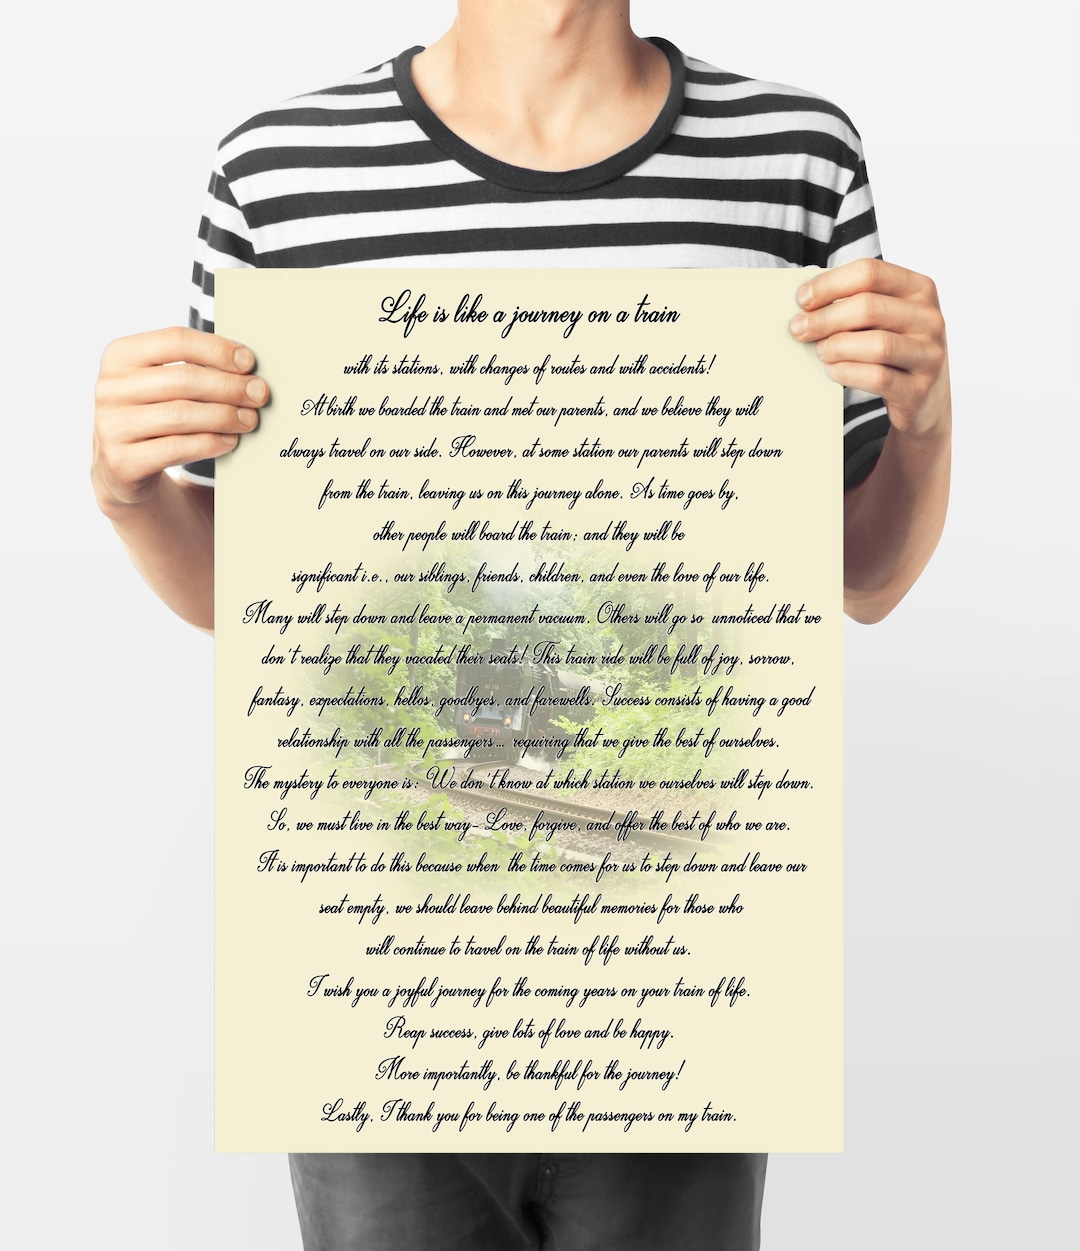 Life is like a journey on a train
with its stations, with changes of routes and with accidents!
At birth we boarded the train and met our parents, and we believe they will
always travel on our side. However, at some station our parents will step down
from the train, leaving us on this journey alone. As time goes by,
other people will board the train; and they will be
significant i.e., our siblings, friends, children, and even the love of our life.
Many will step down and leave a permanent vacuum. Others will go so unnoticed that we
don't realize that they vacated their seats! This train ride will be full of joy, sorrow,
fantasy, expectations, hellos, goodbyes, and farewells. Success consists of having a good
relationship with all the passengers... requiring that we give the best of ourselves.
The mystery to everyone is: We don't know at which station we ourselves will step down.
So, we must live in the best way- Love, forgive, and offer the best of who we are.
It is important to do this because when the time comes for us to step down and leave our
seat empty, we should leave behind beautiful memories for those who
will continue to travel on the train of life without us.
I wish you a joyful journey for the coming years on your train of life.
Reap success, give lots of love and be happy.
More importantly, be thankful for the journey!
Lastly, I thank you for being one of the passengers on my train.